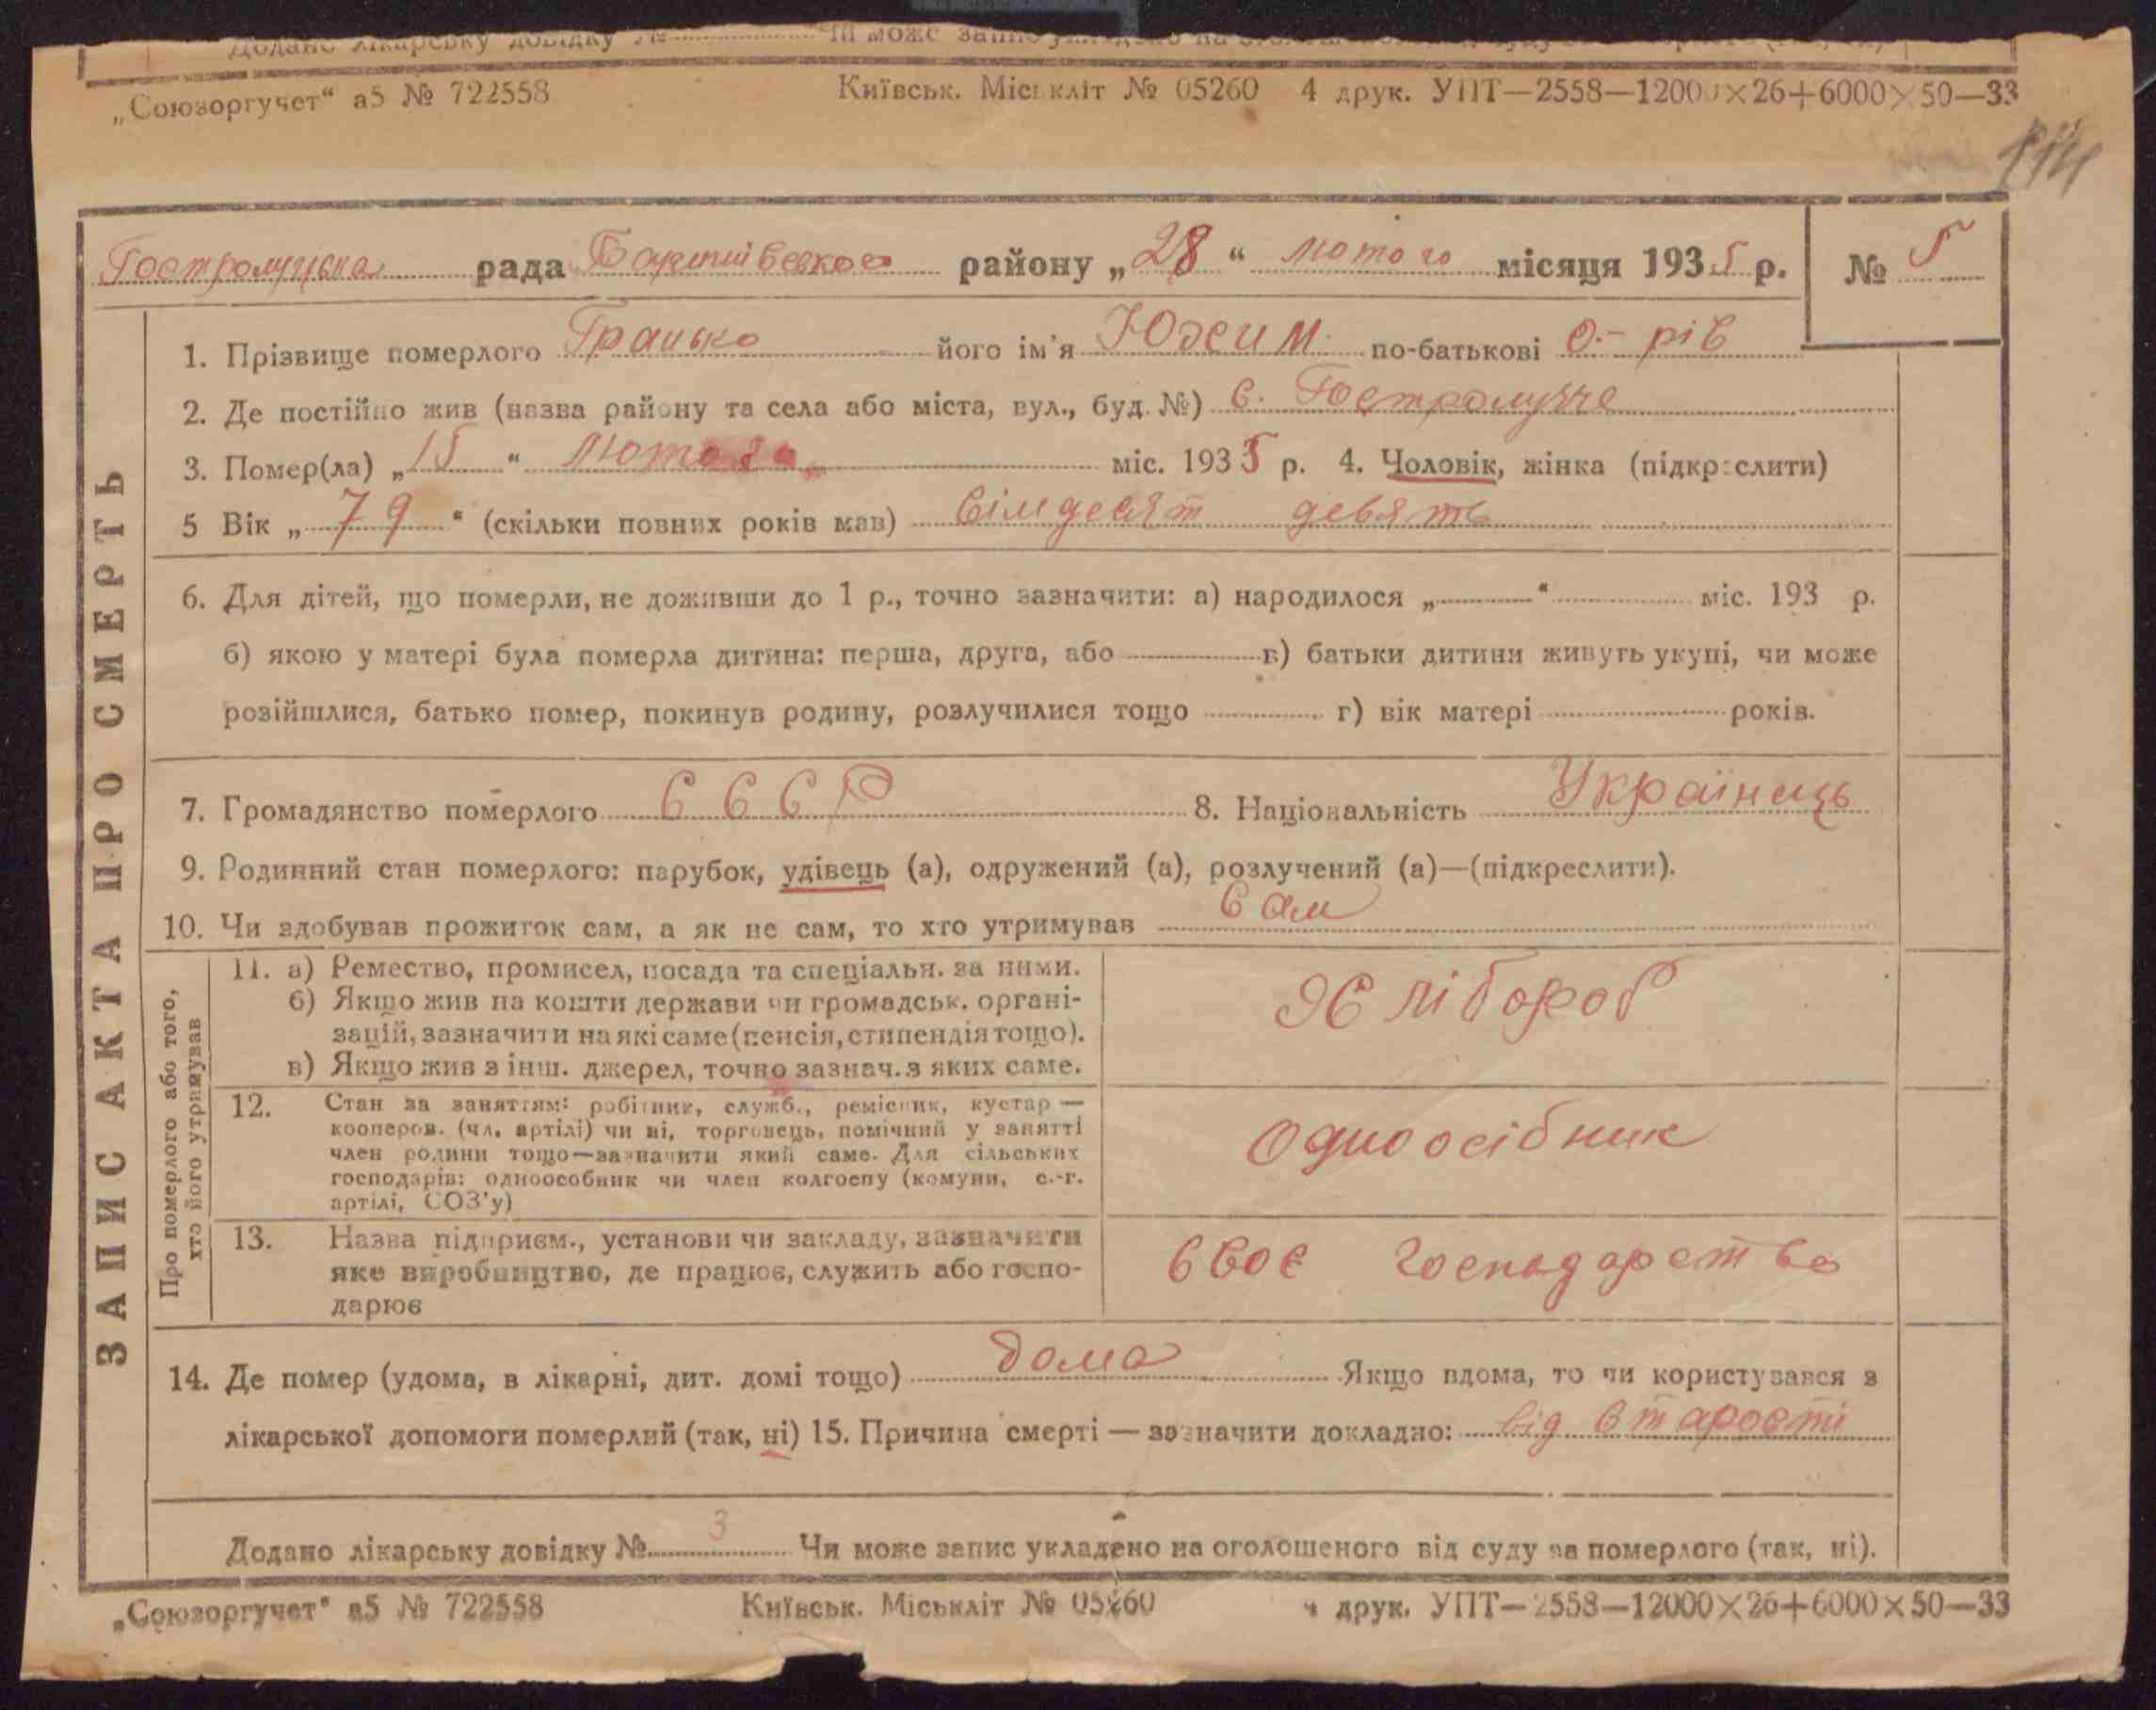 Додано лікарську довідку №
„Союзоргучет“ а5 № 722558 Київськ. Міськліт № 05260 4 друк. УПТ—2558—12000×26+6000×50—33
114
Гостролуцька рада Баришівсской району „28“ лютого місяця 1935 р. № 5
1. Прізвище померлого його ім'я Юхим по-батькові о.- рів
2. Де постійно жив (назва району та села або міста, вул., буд. №) с. Гостролуччє
3. Помер(ла) „15“ лютого міс. 1935 р. 4. Чоловік, жінка (підкреслити)
5 Вік „79“ (скільки повних років мав) сімдесят девять
6. Для дітей, що померли, не доживши до 1 р., точно зазначити: а) народилося „ “ міс. 193 р.
б) якою у матері була померла дитина: перша, друга, або в) батьки дитини живуть укупі, чи може
розійшлися, батько помер, покинув родину, розлучилися тощо г) вік матері років.
7. Громадянство померлого СССР 8. Національність Українець
9. Родинний стан померлого: парубок, удівець (а), одружений (а), розлучений (а)—(підкреслити).
10. Чи здобував прожиток сам, а як не сам, то хто утримував сам
ЗАПИС АКТА ПРО СМЕРТЬ
Про померлого або того,
хто його утримував
11. а) Ремество, промисел, посада та спеціальн. за ними.
б) Якщо жив на кошти держави чи громадськ. органі-
зацій, зазначити на які саме (пенсія, стипендія тощо).
в) Якщо жив з інш. джерел, точно зазнач. з яких саме.
Хлібороб
12. Стан за заняттям: робітник, служб., ремісник, кустар —
кооперов. (чл. артілі) чи ні, торговець, помічний у занятті
член родини тощо—зазначити який саме. Для сільських
господарів: одноособник чи член колгоспу (комуни, с.-г.
артілі, СОЗ'у)
Одноосібник
13. Назва підприєм., установи чи закладу, зазначити
яке виробництво, де працює, служить або госпо-
дарює
своє господарство
14. Де помер (удома, в лікарні, дит. домі тощо) дома Якщо вдома, то чи користувався з
лікарської допомоги померлий (так, ні) 15. Причина смерті — зазначити докладно: від старости
Додано лікарську довідку № 3 Чи може запис укладено на оголошеного від суду за померлого (так, ні).
„Союзоргучет“ а5 № 722558 Київськ. Міськліт № 05260 4 друк. УПТ—2558—12000×26+6000×50—33